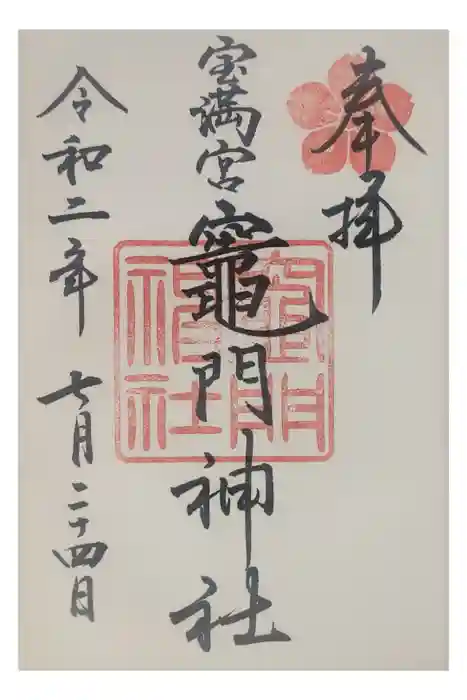 奉拝
宝満宮竈門神社
竈門神社
令和二年七月二十四日